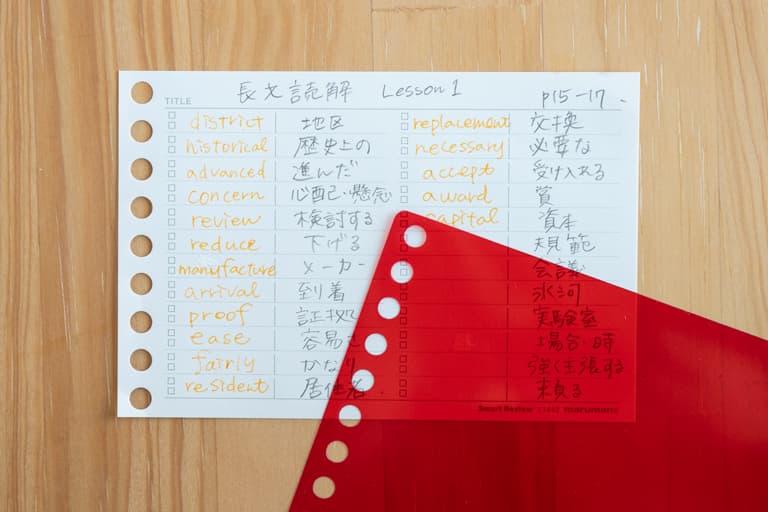 TITLE 長文読解 Lesson 1 p15-17.
district 地区
historical 歴史上の
advanced 進んだ
concern 心配・懸念
review 検討する
reduce 下げる
manufacture メーカー
arrival 到着
proof 証拠
ease 容易さ
fairly かなり
resident 居住者.
replacement 交換
necessary 必要な
accept 受け入れる
award 賞
capital 資本
規範
会議
氷河
実験室
場合・時
強く主張する
頼る
Smart Review L1442 maruman®